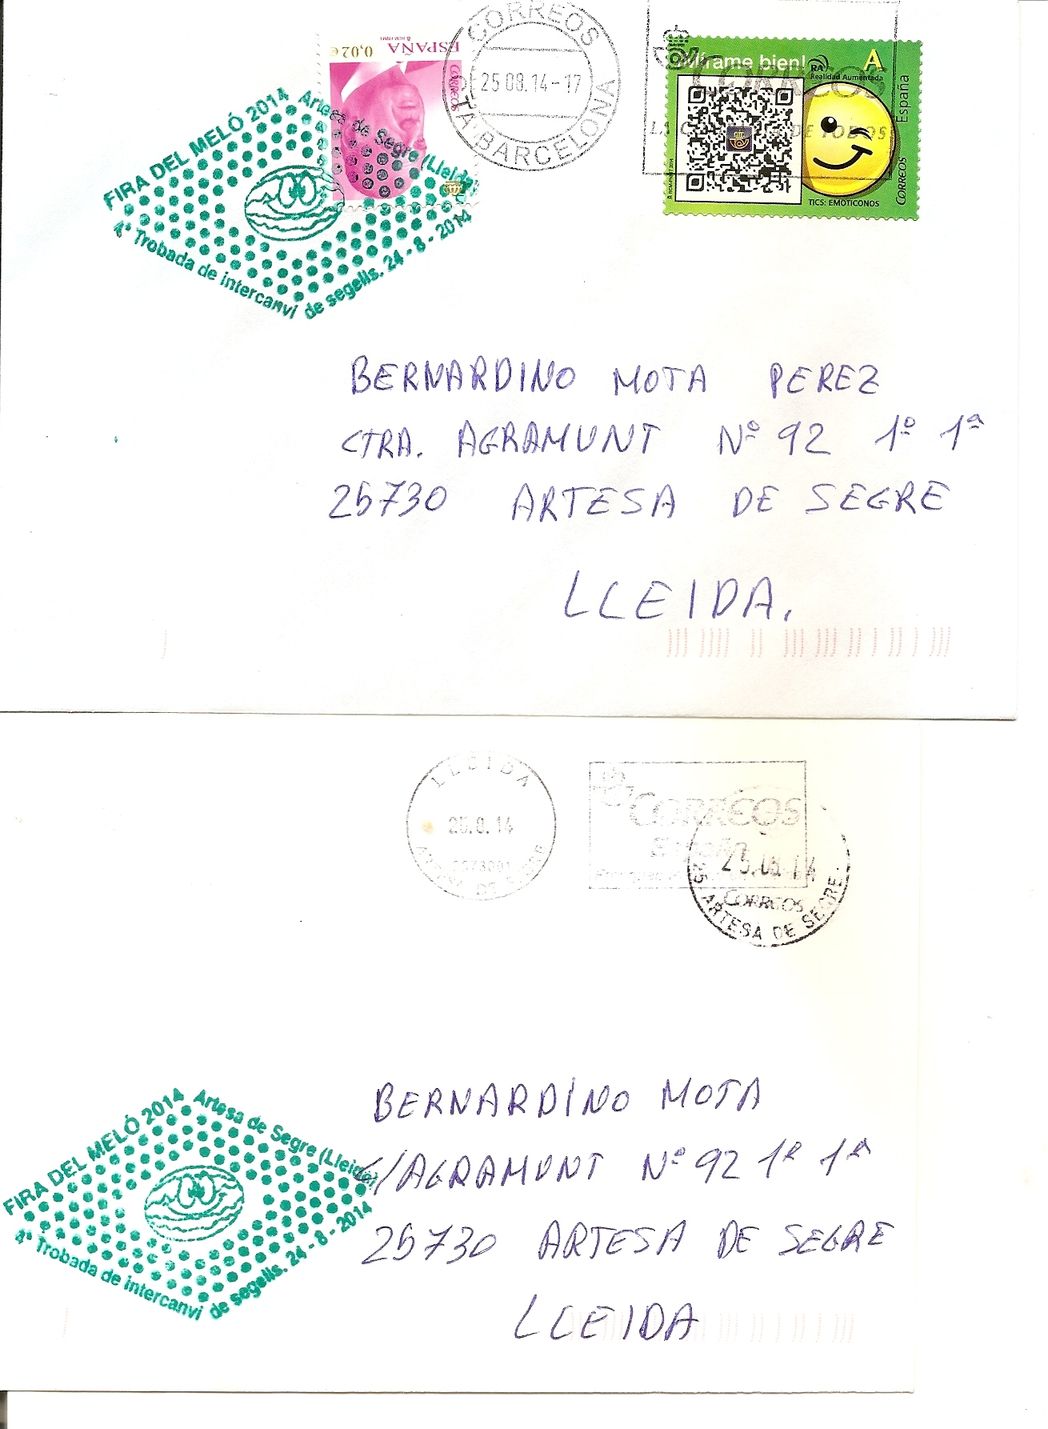 FIRA DEL MELÓ 2014 Artesa de Segre (Lleida)
4ª Trobada de intercanvi de segells. 24-8-2014
ESPAÑA 0,02€
CORREOS
CORREOS
25 08.14-17
CTA-BARCELONA
CORREOS
¡Mírame bien!
RA
Realidad Aumentada
A
España
CORREOS
TICS: EMOTICONOS
BERNARDINO MOTA PEREZ
CTRA. AGRAMUNT Nº 92 1º 1ª
25730 ARTESA DE SEGRE
LLEIDA.
LLEIDA
25.8.14
ARTESA DE SEGRE
CORREOS
España
CORREOS
ARTESA DE SEGRE
FIRA DEL MELÓ 2014 Artesa de Segre (Lleida)
4ª Trobada de intercanvi de segells. 24-8-2014
BERNARDINO MOTA
C/AGRAMUNT Nº 92 1º 1ª
25730 ARTESA DE SEGRE
LLEIDA